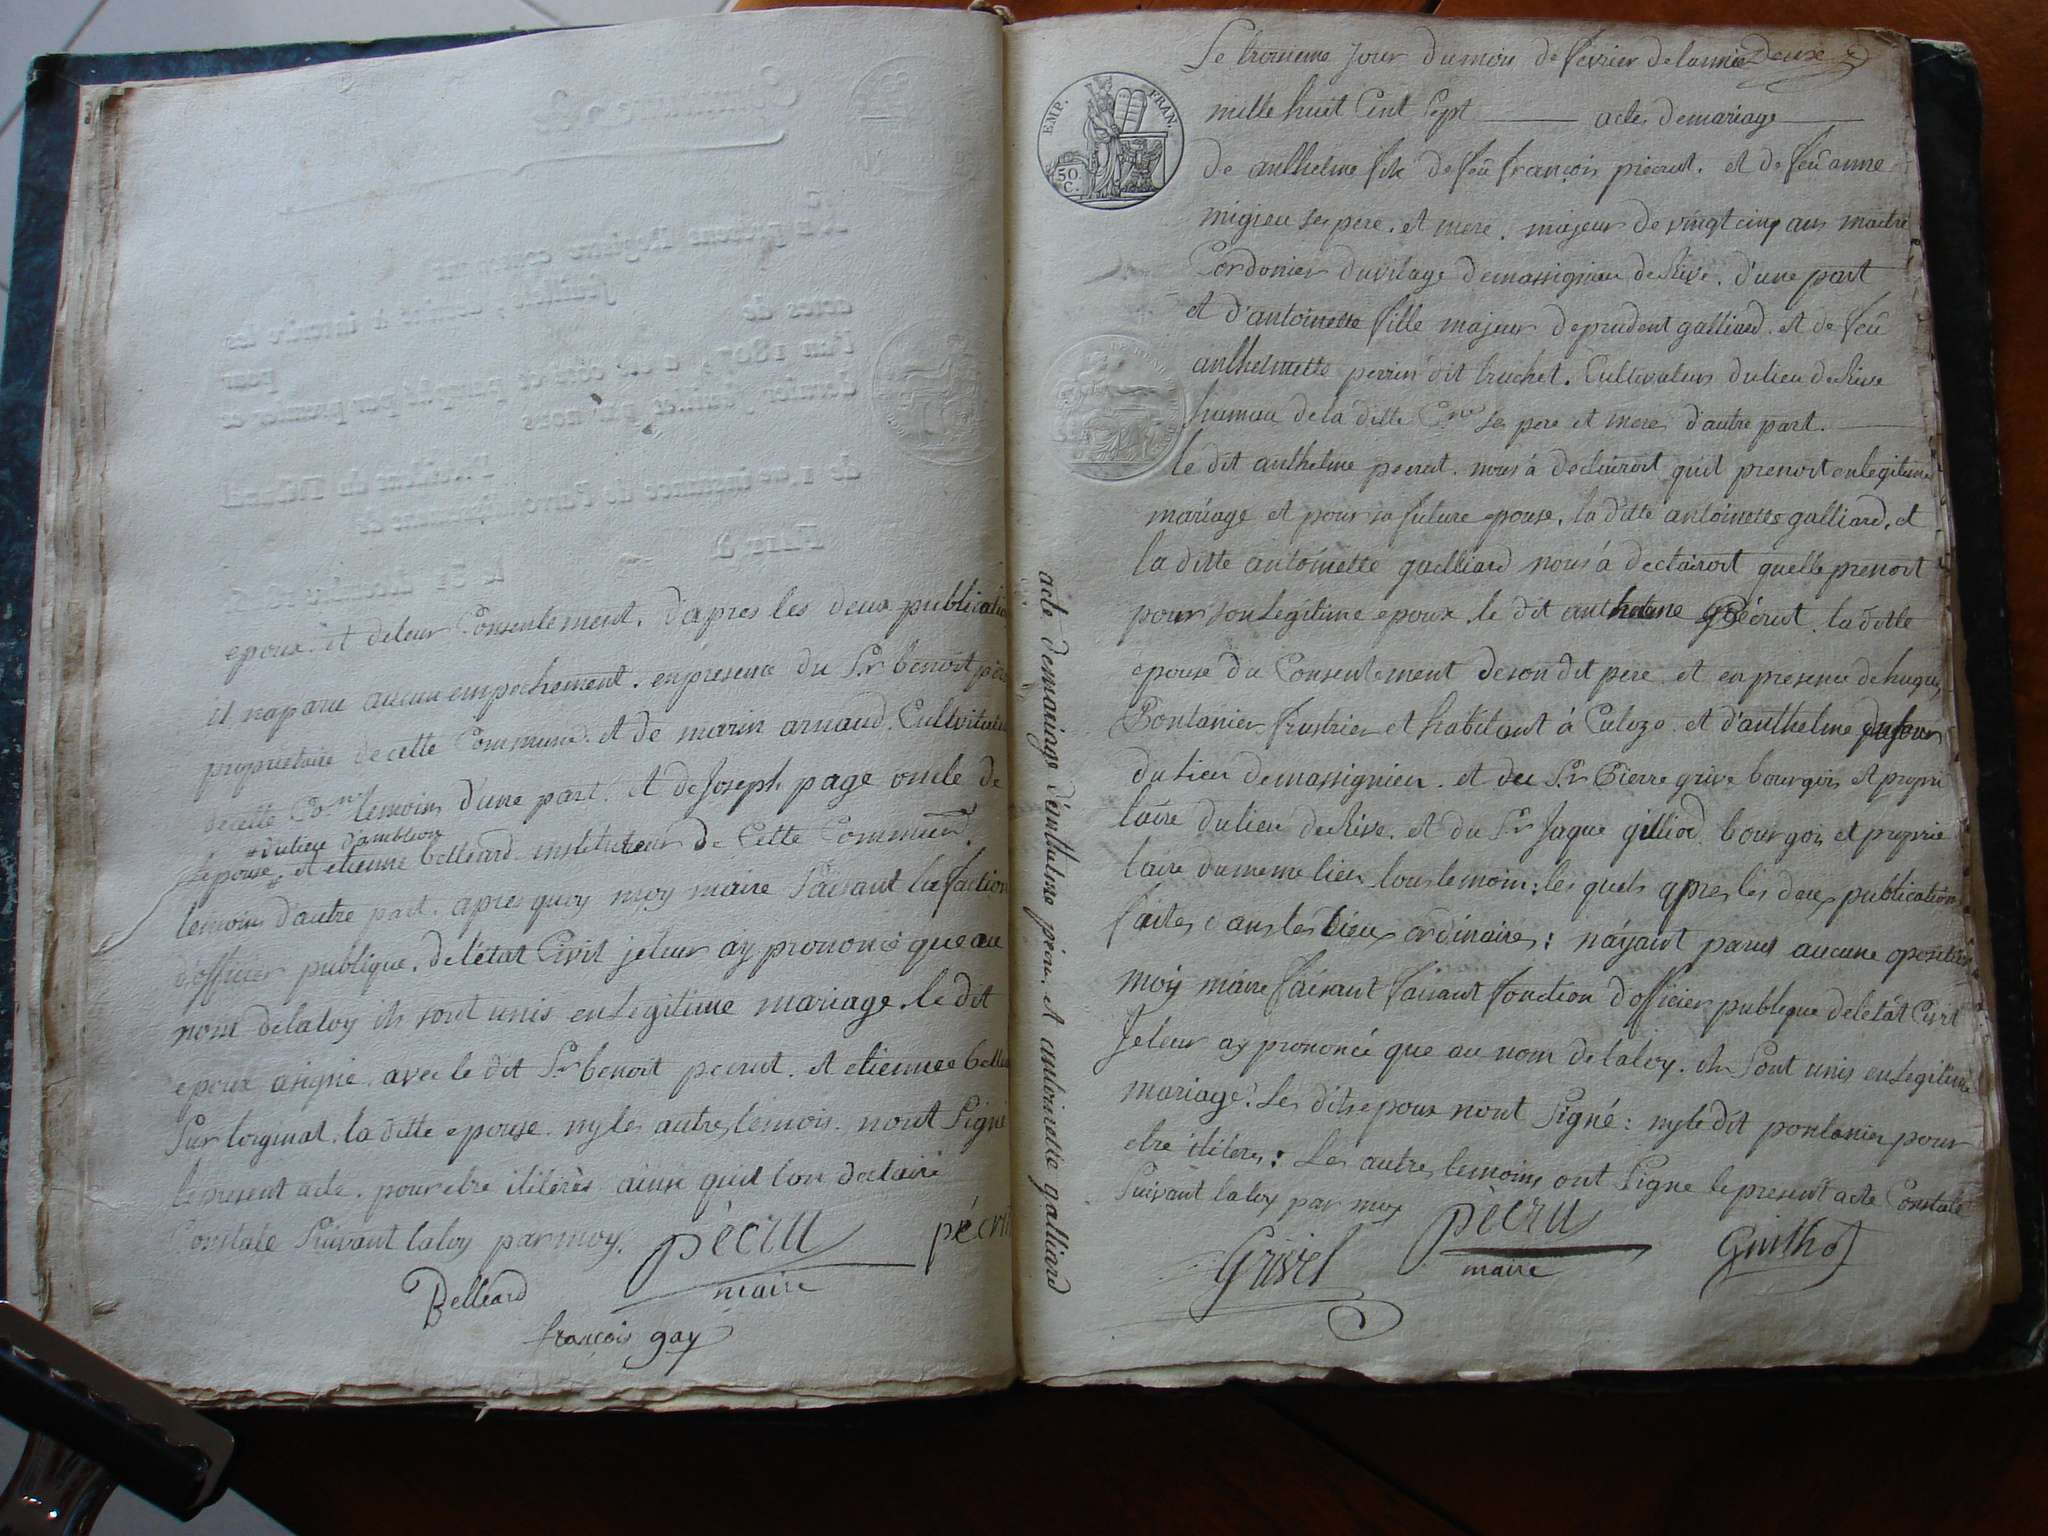 epoux. et deleur Consentement. d'apres les deux publicatio
il naparu aucun empechement. enpresence du Sr benoit pécru
propriétaire decette Commune. et de marin arnaud. Cultivateur
decette Cne temoins d'une part. et deJoseph page oncle de
*dulieu d'ambleon
l'epouse * et etienne bellerd instituteur de Cette Commune.
temoins d'autre part. apres quoy moy maire faisant la faction
d'officier publique. deletat Civil jeleur ay prononcé que au
nom delaloy ils sont unis enLegitime mariage. le dit
epoux asigné avec le dit Sr benoit pecrut. et etienne bellea
Sur loriginal. la ditte epouse. nyles autres temois. nont Signé
lepresent acte. pour etre iliterés ainsi quil lon declairé
Constaté Suivant laloy parmoy.
pécru
maire
pécru
Belleard
françois gay
EMP. FRAN.
50 C.
Le troisieme jour dumois de fevrier delannée Deux
mille huit Cent Sept actes demariage
de anthelme fils defeû françois piecrut. et de feû anne
migieu ses pere. et mere. majeur de vingtcinq ans maitre
Cordonier duvilage demassignieu deRive. d'une part
et d'antoinette fille majeur deprudent galliard. et de feû
anthelmette perrin dit truchet. Cultivateurs dulieu deRive
hameau dela ditte Cne ses pere et mere d'autre part.
le dit anthelme pecrut. nous à declairoit quil prenoit enlegitime
mariage et pour sa future epouse. la ditte antoinette galliard. et
la ditte antoinette gaelliard nous à declairoit quelle prenoit
pour sonLegitime epoux le dit anthelme pécrut. la ditte
epouse du Consentement deson dit pere et en presence de hugues
Pontanier fruitier et habitant à Culoze et d'anthelme dufour
dulieu demassignieu. et du Sr Pierre grive bourgois et proprie
taire dulieu deRive. et du Sr Jaque gilliod bourgois et proprie
taire dumeme lieu tous temoin: les quels apres les deux publications
faites dans les Lieux ordinaires: nayant parus aucune oposition
moy maire faisant faisant fonction dofficier publique deletat Civil
Jeleur ay prononcé que au nom de laloy. ils Sont unis enLegitime
mariage. les dits epoux nont Signé: nyledit pontanier pour
etre iliteres: Les autres temoins ont Signe lepresent acte Constaté
Suivant laloy par moy
Grivel
pécru
maire
Guilhot
acte demairiage d'anthelme pécru. et antoinette galliard